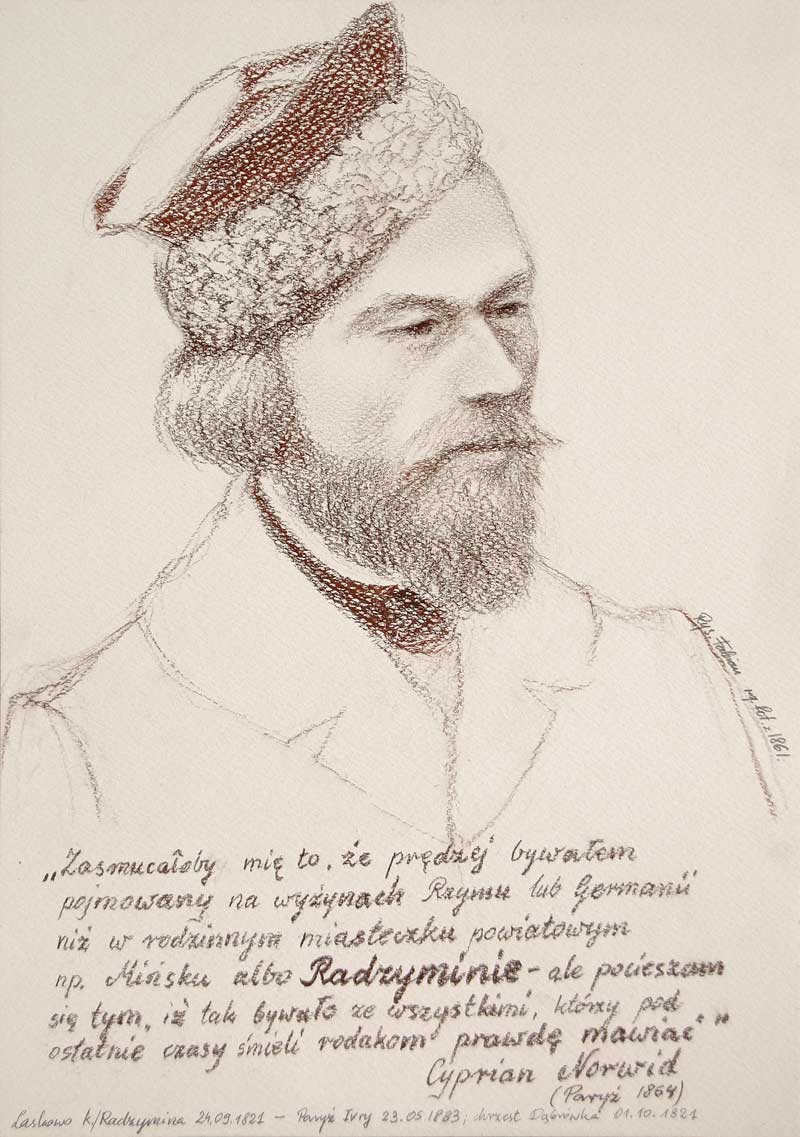 Rys. Fabian
19. fot. z 1861.
„Zasmucałoby mię to, że prędzej bywałem
pojmowany na wyżynach Rzymu lub Germanii
niż w rodzinnym miasteczku powiatowym
np. Mińsku albo Radzyminie - ale pocieszam
się tym, iż tak bywało ze wszystkimi, którzy pod
ostatnie czasy śmieli rodakom prawdę mawiać"
Cyprian Norwid
(Paryż 1864)
Laskowo k/Radzymina 24.09.1821 - Paryż Ivry 23.05.1883; chrzest Dąbrówka 01.10.1821